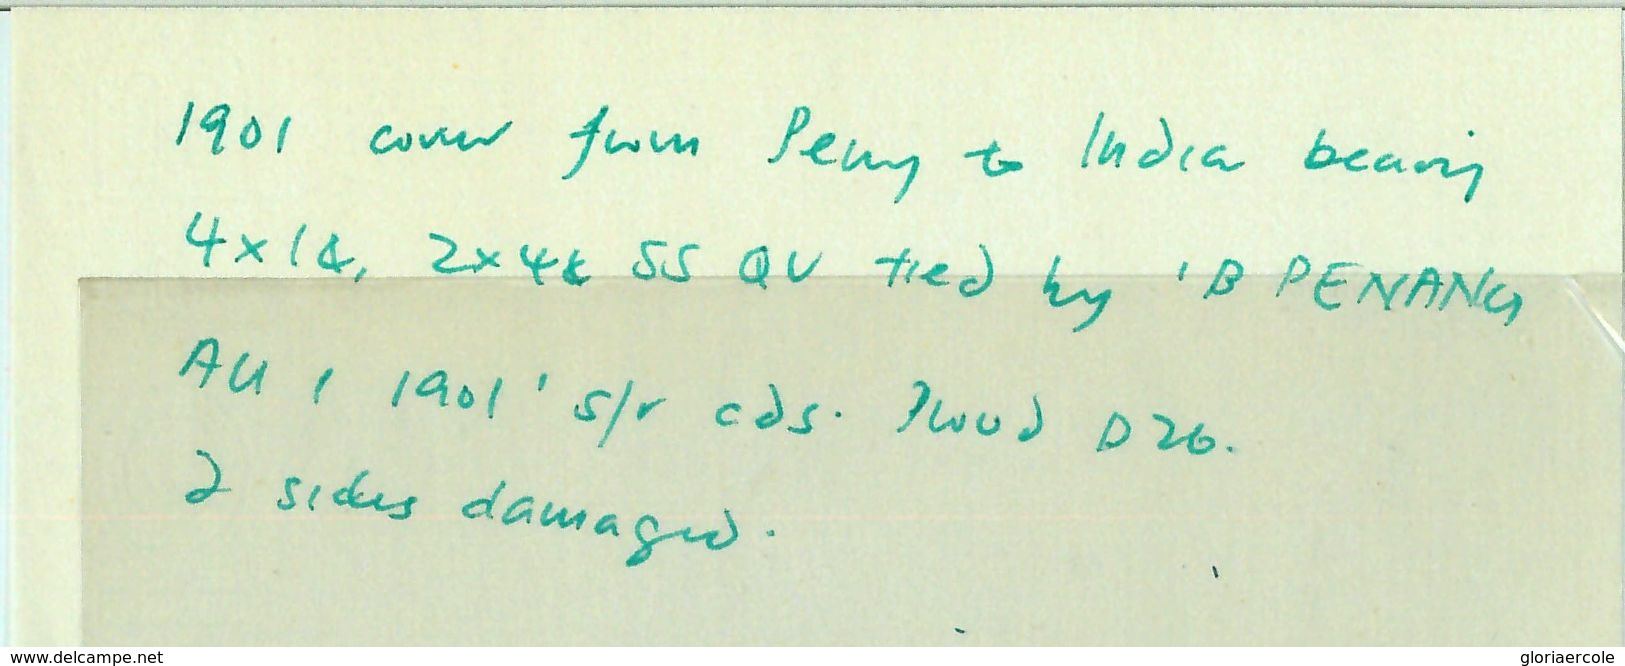 1901 cover from Penang to India bearing
4x1¢, 2x4¢ SS QV tied by 'B PENANG
AU 1 1901' s/r cds. Proud D26.
2 sides damaged.
www.delcampe.net
gloriaercole